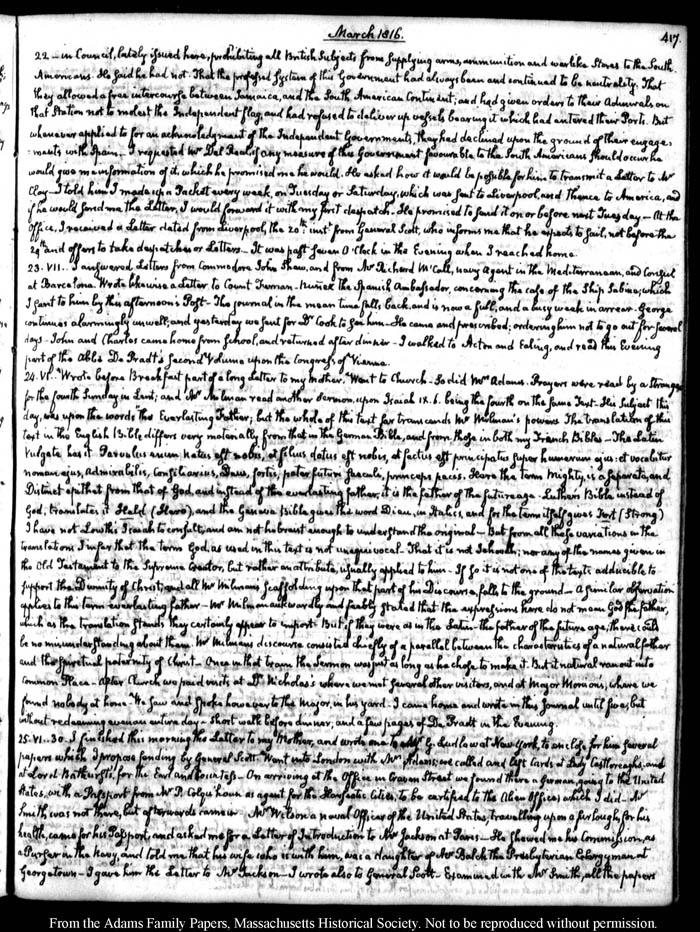 March 1816.
417.
22 — in Council, lately issued here, prohibiting all British Subjects from supplying arms, ammunition and warlike Stores to the South
Americans. He said he had not. That the professed System of this Government had always been and continued to be neutrality. That
they allowed a free intercourse between Jamaica, and the South American Continent; and had given orders to their Admirals on
that Station not to molest the Independent flag, and had refused to deliver up vessels bearing it which had entered their Ports. But
whenever applied to for an acknowledgment of the Independent Governments, they had declined upon the ground of their engage-
-ments with Spain. I requested Mr Del Real if any measure of this Government favourable to the South Americans should occur he
would give me information of it, which he promised me he would. He asked how it would be possible for him to transmit a Letter to Mr
Clay — I told him I made up a Packet every week, on Tuesday or Saturday, which was sent to Liverpool, and thence to America, and
if he would send me the Letter, I would forward it with my first despatch. He promised to send it on or before next Tuesday — At the
Office, I received a Letter dated from Liverpool, the 20th inst from General Scott, who informs me that he expects to sail, not before the
29th and offers to take despatches or Letters — It was past seven O'Clock in the Evening when I reached home.
23. VII. I answered Letters from Commodore John Shaw, and from Mr Richard McCall, navy Agent in the Mediterranean, and Consul
at Barcelona. Wrote likewise a Letter to Count Fernan-Nuñez the Spanish Ambassador, concerning the case of the Ship Sabine; which
I sent to him by this afternoon's Post — The journal in the mean time falls back, and is now a full, and a busy week in arrear. George
continues alarmingly unwell; and yesterday we sent for Dr Cook to see him — He came and prescribed; ordering him not to go out for several
days — John and Charles came home from School, and returned after dinner — I walked to Acton and Ealing, and read this Evening
part of the Abbé De Pradt's second Volume upon the Congress of Vienna.
24. VI. Wrote before Breakfast part of a long Letter to my Mother. Went to Church — So did Mrs Adams. Prayers were read by a Stranger
for the fourth Sunday in Lent; and Mr Milman read another Sermon, upon Isaiah IX. 6. being the fourth on the same Text. His Subject this
day, was upon the words the Everlasting Father; but the whole of this text far transcends Mr Milman's powers. The translation of this
text in the English Bible differs very materially from that in the German Bible, and from those in both my French Bibles — The Latin
Vulgate has it Parvulus enim natus est nobis, et filius datus est nobis, et factus est principatus super humerum ejus: et vocabitur
nomen ejus, Admirabilis, Consiliarius, Deus, fortis, pater futuri saeculi, princeps pacis. Here the term Mighty, is a separate, and
Distinct epithet from that of God, and instead of the everlasting father, it is the father of the future age — Luther's Bible instead of
God, translates it Held, (Hero), and the Geneva Bible gives the word Dieu, in Italics, and for the term itself gives Fort (Strong)
I have not Lowth's Isaiah to consult, and am not hebraist enough to understand the original — But from all these variations in the
translations I infer that the term God, as used in this text is not unequivocal. That it is not Jehovah; nor any of the names given in
the Old Testament to the Supreme Creator, but rather an attribute, usually applied to him — If so it is not one of the texts adducible to
support the Divinity of Christ; and all Mr Milman's scaffolding upon that part of his Discourse, falls to the ground — A similar observation
applies to the term everlasting father — Mr Milman awkwardly and feebly stated that the expressions here do not mean God the father,
which as the translation stands they certainly appear to import — But if they were as in the Latin — the father of the future age, there could
be no misunderstanding about them. Mr Milman's discourse consisted chiefly of a parallel between the characteristics of a natural father
and the spiritual paternity of Christ. Once in that train the Sermon was just as long as he chose to make it. But it natural ran out into
common Place — After Church we paid visits at Dr Nicholas's where we met several other visitors, and at Major Morison's, where we
found nobody at home. We saw and spoke however to the Major, in his yard. I came home and wrote in this Journal until five, but
without redeeming even an entire day — Short walk before dinner, and a few pages of De Pradt in the Evening.
25. VI. 30. I finished this morning the Letter to my Mother, and wrote one to Mr G. Ludlow at New-York, to enclose for him several
papers which I propose sending by General Scott. Went into London with Mrs Adams; we called and left Cards at Lady Castlereagh's, and
at Lord Bathurst's, for the Earl and Countess — On arriving at the Office in Craven Street we found there a German, going to the United
States, with a Passport from Mr P. Colquhoun as agent for the Hanseatic Cities, to be certified to the Alien Office; which I did — Mr
Smith was not there, but afterwards came in — Mr Wilson a naval Officer of the United States, travelling upon a furlough, for his
health, came for his Passport, and asked me for a Letter of Introduction to Mr Jackson at Paris — He shewed me his Commission, as
a Purser in the Navy, and told me that his wife who is with him, was a daughter of Mr Balch the Presbyterian Clergyman at
Georgetown — I gave him the Letter to Mr Jackson — I wrote also to General Scott — Examined with Mr Smith, all the papers
From the Adams Family Papers, Massachusetts Historical Society. Not to be reproduced without permission.